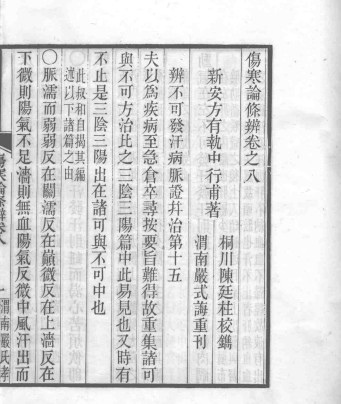 傷寒論條辨卷之八
新安方有執中行甫著
桐川陳廷柱校鐫
渭南嚴式誨重刊
辨不可發汗病脈證并治第十五
夫以爲疾病至急倉卒尋按要旨難得故重集諸可
與不可方治比之三陰三陽篇中此易見也又時有
不止是三陰三陽出在諸可與不可中也
○此叔和自揭其編
述以下諸篇之由
○脈濡而弱弱反在關濡反在巔微反在上濇反在
下微則陽氣不足濇則無血陽氣反微中風汗出而
傷寒論條辨 卷八 一 渭南嚴氏孝